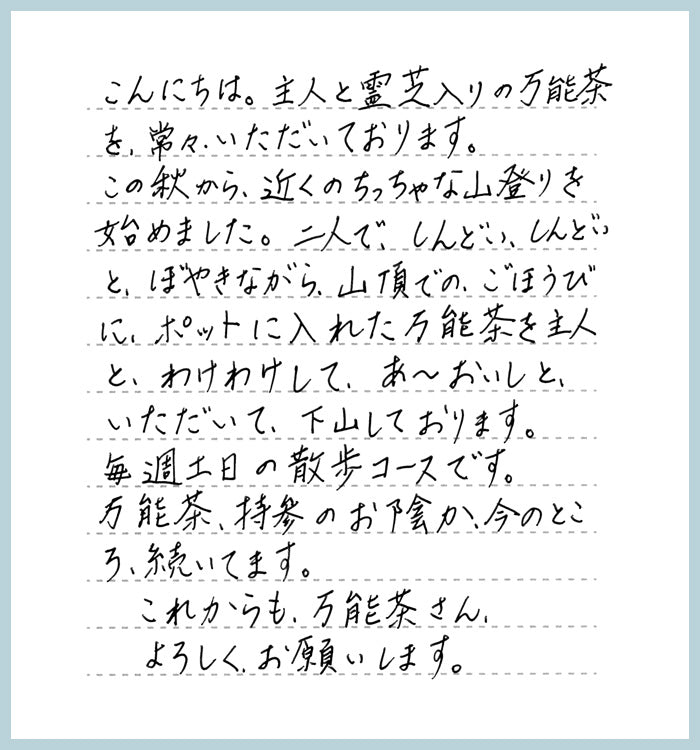 こんにちは。主人と霊芝入りの万能茶
を、常々、いただいております。
この秋から、近くのちっちゃな山登りを
始めました。二人で、しんどい、しんどい
と、ぼやきながら、山頂での、ごほうび
に、ポットに入れた万能茶を主人
と、わけわけして、あ〜おいしと、
いただいて、下山しております。
毎週土日の散歩コースです。
万能茶、持参のお陰か、今のとこ
ろ、続いてます。
これからも、万能茶さん、
よろしく、お願いします。